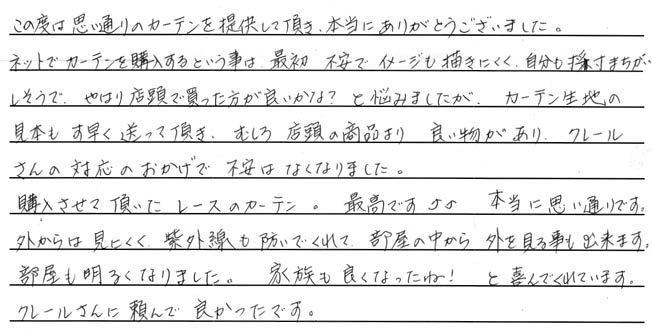 この度は思い通りのカーテンを提供して頂き、本当にありがとうございました。
ネットでカーテンを購入するという事は、最初 不安で イメージも描きにくく、自分も採寸まちがい
しそうで、やはり店頭で買った方が良いかな？と悩みましたが、カーテン生地の
見本もす早く送って頂き、むしろ店頭の商品より 良い物があり、クレール
さんの対応のおかげで 不安はなくなりました。
購入させて頂いたレースのカーテン。最高です♪♪ 本当に思い通りです。
外からは見にくく、紫外線も防いでくれて、部屋の中から 外を見る事も出来ます。
部屋も明るくなりました。 家族も良くなったね！ と喜んでくれています。
クレールさんに頼んで良かったです。